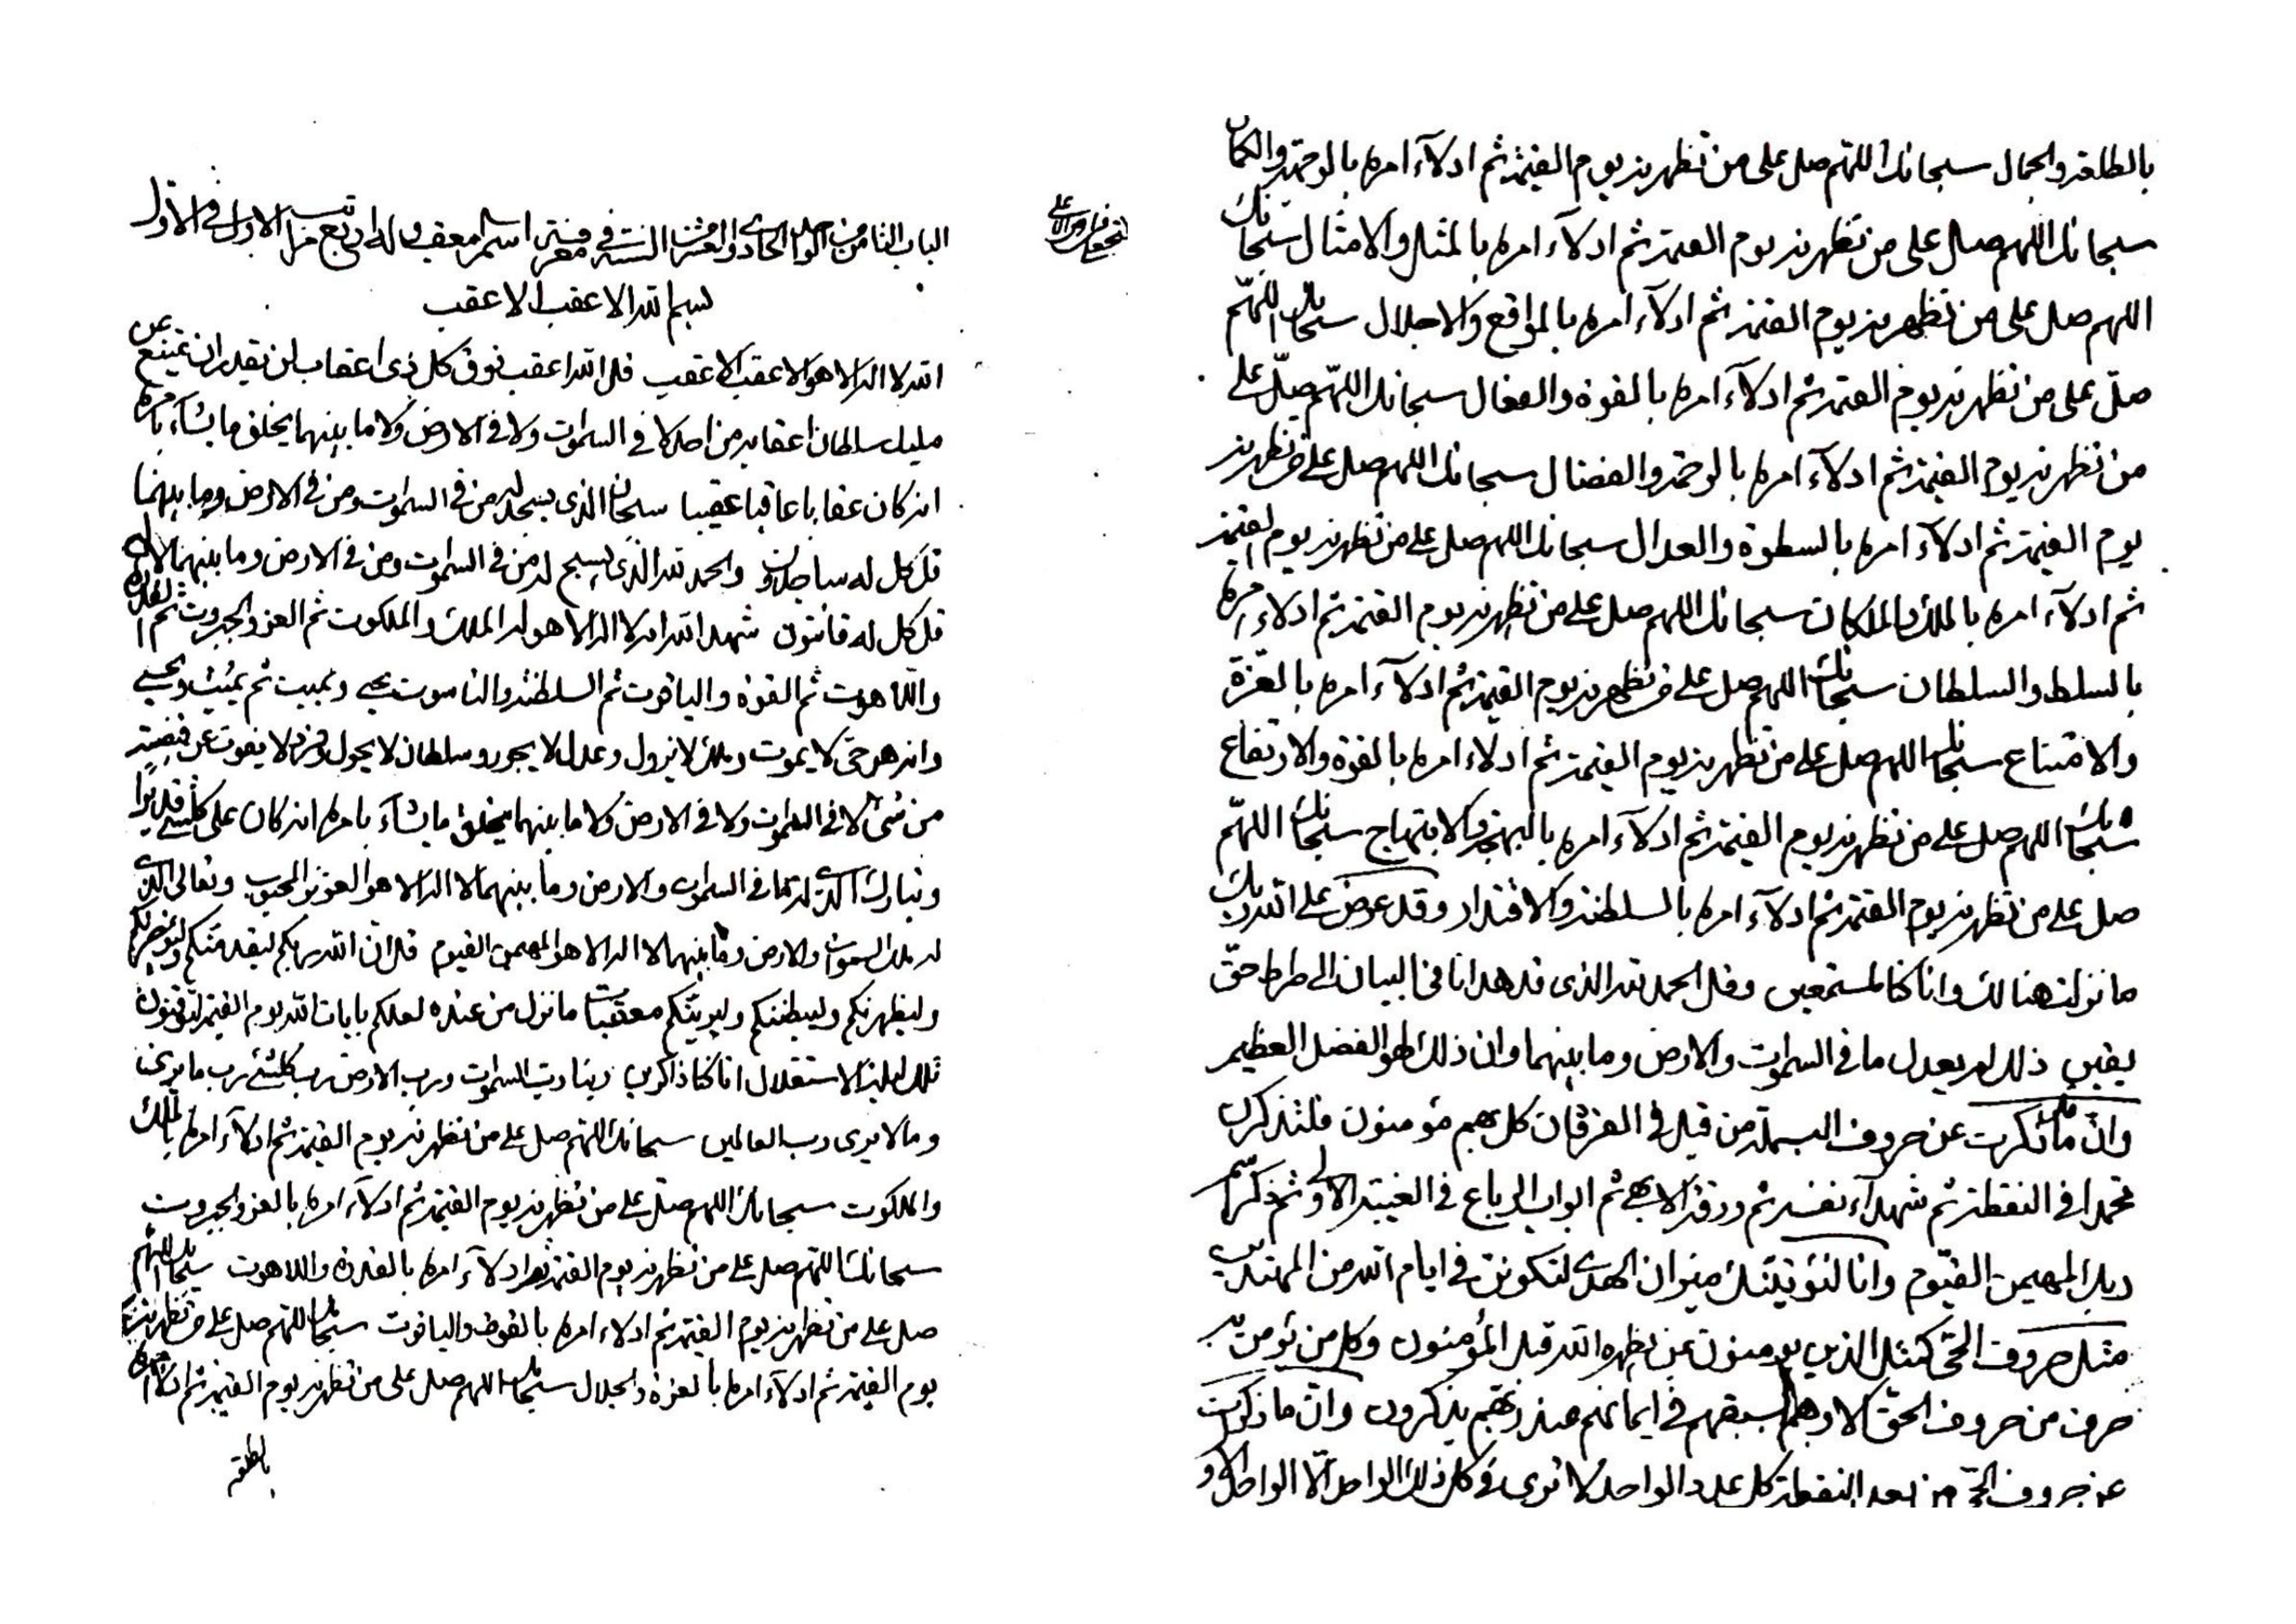 الباب الثامن من الواحد الحادي والعشر من السنة في معرفة اسم المعقب وله اربع مراتب الاول في الاول
بسم الله الاعقب الاعقب
الله لا اله الا هو الاعقب الاعقب قل الله اعقب فوق كل ذى اعقاب لن يقدر ان يمتنع عن
مليك سلطان اعقابه من احد لا فى السموات ولا فى الارض ولا ما بينهما يخلق ما يشآء بامره
انه كان عقابا عاقبا عقيبا سبحان الذى يسجد له من فى السموات ومن فى الارض وما بينهما
قل كل له ساجدون والحمد لله الذى يسبح له من فى السموات ومن فى الارض وما بينهما
قل كل له قانتون شهد الله انه لا اله الا هو له الملك والملكوت ثم العز والجبروت ثم القدرة
واللاهوت ثم القوة والياقوت ثم السلطنة والناسوت يحيى ويميت ثم يميت ويحيى
وانه هو حى لا يموت وملك لا يزول وعدل لا يجور وسلطان لا يحول وفرد لا يفوت عن قبضته
من شئ لا فى السموات ولا فى الارض ولا ما بينهما يخلق ما يشآء بامره انه كان على كلشئ قديرا
وتبارك الذى له ما فى السموات والارض وما بينهما لا اله الا هو العزيز المحبوب وتعالى الذى
له ملك السموات والارض وما بينهما لا اله الا هو المهيمن القيوم قل ان الله ربكم
وليظهرنكم وليبطننكم وليرينكم معقبات ما نزل من عنده لعلكم بايات الله يوم القيمة لتوقنون
تلك ليلة الاستقلال انا كنا ذاكرين ربنا رب السموات ورب الارض رب كلشئ رب ما يرى
وما لا يرى رب العالمين سبحانك اللهم صل على من تظهرنه يوم القيمة ثم ادلآء امره بالملك
والملكوت سبحانك اللهم صل على من تظهرنه يوم القيمة ثم ادلآء امره بالعز والجبروت
سبحانك اللهم صل على من تظهرنه يوم القيمة ثم ادلآء امره بالقدرة واللاهوت سبحانك اللهم
صل على من تظهرنه يوم القيمة ثم ادلاء امره بالقوة والياقوت سبحانك اللهم صل على من تظهرنه
يوم القيمة ثم ادلآء امره بالعزة والجلال سبحانك اللهم صل على من تظهرنه يوم القيمة ثم ادلاء امره
بالطلعة
بالطلعة والجمال سبحانك اللهم صل على من تظهرنه يوم القيمة ثم ادلآء امره بالوجهة والكمال
سبحانك اللهم صل على من تظهرنه يوم القيمة ثم ادلآء امره بالمثل والامثال سبحانك
اللهم صل على من تظهرنه يوم القيمة ثم ادلآء امره بالمواقع والاجلال سبحانك اللهم
صل على من تظهرنه يوم القيمة ثم ادلآء امره بالقوة والفعال سبحانك اللهم صل على
من تظهرنه يوم القيمة ثم ادلآء امره بالرحمة والفضال سبحانك اللهم صل على من تظهرنه
يوم القيمة ثم ادلآء امره بالسطوة والعدال سبحانك اللهم صل على من تظهرنه يوم القيمة
ثم ادلآء امره بالملك والملكان سبحانك اللهم صل على من تظهرنه يوم القيمة ثم ادلاء امره
بالسلط والسلطان سبحانك اللهم صل على من تظهرنه يوم القيمة ثم ادلآء امره بالعزة
والامتناع سبحانك اللهم صل على من تظهرنه يوم القيمة ثم ادلاء امره بالقوة والارتفاع
سبحانك اللهم صل على من تظهرنه يوم القيمة ثم ادلآء امره بالبهجة والابتهاج سبحانك اللهم
صل على من تظهرنه يوم القيمة ثم ادلآء امره بالسلطنة والاقتدار وقد عرض على الله ربك
ما نزلت هنالك وانا كنا لمستمعين وقل الحمد لله الذى قد هدانا فى البيان الى صراط حق
يقين ذلك لم يعدل ما فى السموات والارض وما بينهما وان ذلك لهو الفضل العظيم
وان ما ذكرت عن حروف البسملة من قبل فى الفرقان كل بهم مؤمنون فلتذكرن
محمدا فى النقطة ثم شهدآء نفسه ثم ورقة الابهى ثم ابواب الرباع فى الغيبة الاولى ثم ذكر اسم
ربك المهيمن القيوم وانا لنؤتينك ميزان الهدى لتكونن فى ايام الله من المهتدين
مثل حروف الحى كمثل الذين يومنون بمن يظهره الله قبل المؤمنون وكل من يؤمن به
حرف من حروف الحق الا وهم سبقهم فى ايمانهم عند ربهم يذكرون وان ما ذكرت
عن حروف الحى من بعد النقطة كل عدد الواحد لا ترى فى كل ذلك الواحد الا الواحد الاول